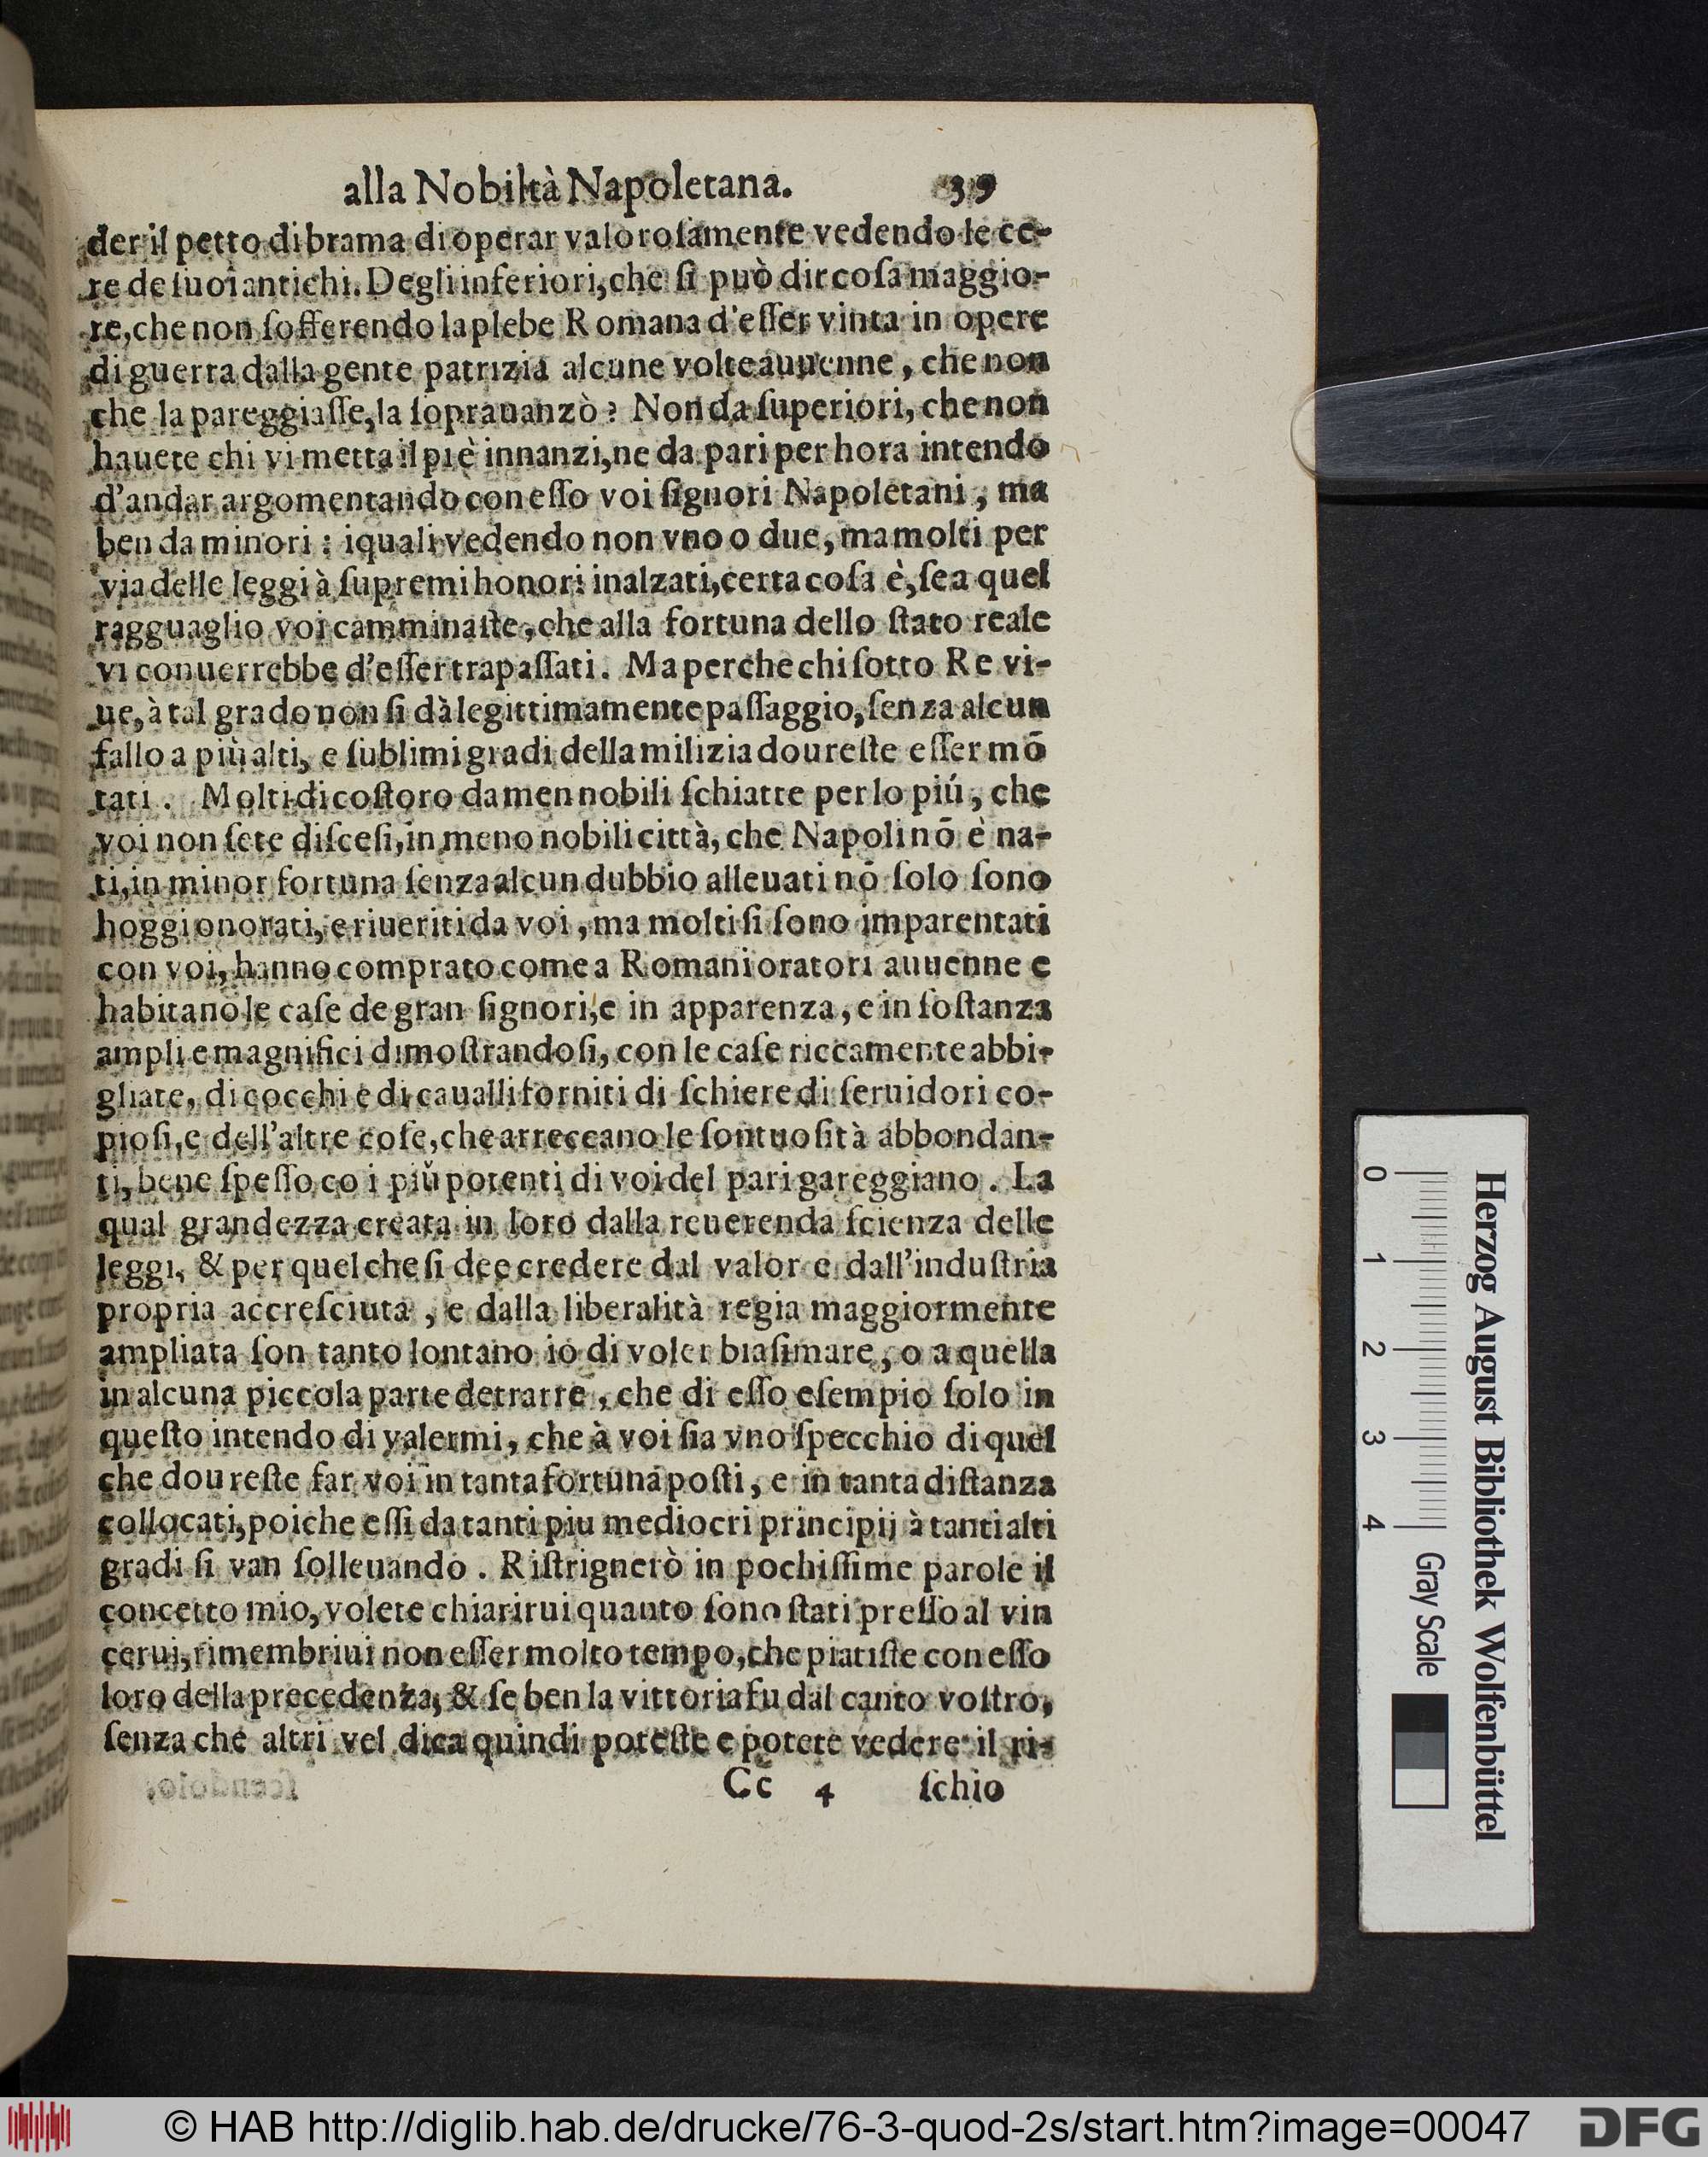 alla Nobiltà Napoletana. 39
der il petto di brama di operar valoroſamente vedendo le ce-
re de ſuoi antichi. Degli inferiori, che ſi può dir coſa maggio-
re, che non ſofferendo la plebe Romana d'eſſer vinta in opere
di guerra dalla gente patrizia alcune volte auuenne, che non
che la pareggiaſſe, la ſoprauanzò? Non da ſuperiori, che non
hauete chi vi metta il piè innanzi, ne da pari per hora intendo
d'andar argomentando con eſſo voi ſignori Napoletani, ma
ben da minori: iquali vedendo non vno o due, ma molti per
via delle leggi à ſupremi honori inalzati, certa coſa è, ſe a quel
ragguaglio voi camminaſte, che alla fortuna dello ſtato reale
vi conuerrebbe d'eſſer trapaſſati. Ma perche chi ſotto Re vi-
ue, à tal grado non ſi dà legittimamente paſſaggio, ſenza alcun
fallo a più alti, e ſublimi gradi della milizia doureſte eſſer mō
tati. Molti di coſtoro da men nobili ſchiatte per lo piú, che
voi non ſete diſceſi, in meno nobili città, che Napoli nō è na-
ti, in minor fortuna ſenza alcun dubbio alleuati nō ſolo ſono
hoggi onorati, e riueriti da voi, ma molti ſi ſono imparentati
con voi, hanno comprato come a Romani oratori auuenne e
habitano le caſe de gran ſignori, e in apparenza, e in ſoſtanza
ampli e magnifici dimoſtrandoſi, con le caſe riccamente abbi-
gliate, di cocchi e di caualli forniti di ſchiere di ſeruidori co-
pioſi, e dell'altre coſe, che arreccano le ſontuoſità abbondan-
ti, bene ſpeſſo co i più potenti di voi del pari gareggiano. La
qual grandezza creata in loro dalla reuerenda ſcienza delle
leggi, & per quel che ſi dee credere dal valor e dall'induſtria
propria accreſciuta, e dalla liberalità regia maggiormente
ampliata ſon tanto lontano io di voler biaſimare, o a quella
in alcuna piccola parte detrarre, che di eſſo eſempio ſolo in
queſto intendo di valermi, che à voi ſia vno ſpecchio di quel
che doureſte far voi in tanta fortuna poſti, e in tanta diſtanza
collocati, poiche eſſi da tanti piu mediocri principij à tanti alti
gradi ſi van ſolleuando. Riſtrignerò in pochiſſime parole il
concetto mio, volete chiarirui quanto ſono ſtati preſſo al vin
cerui, rimembriui non eſſer molto tempo, che piatiſte con eſſo
loro della precedenza, & ſe ben la vittoria fu dal canto voſtro,
ſenza che altri vel dica quindi poteſte e potete vedere il ri-
Cc 4 ſchio
Herzog August Bibliothek Wolfenbüttel
0 1 2 3 4 Gray Scale
© HAB http://diglib.hab.de/drucke/76-3-quod-2s/start.htm?image=00047
DFG